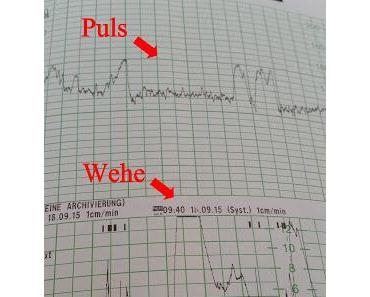 Puls
Wehe
EINE ARCHIVIERUNG)
18.09.15 1cm/min
09:40 .09.15 (Syst.) 1cm/min
12
10
8
6